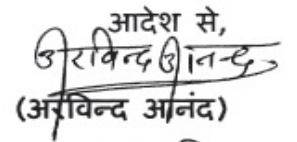 आदेश से,
अरविन्द आनन्द
(अरविन्द आनंद)